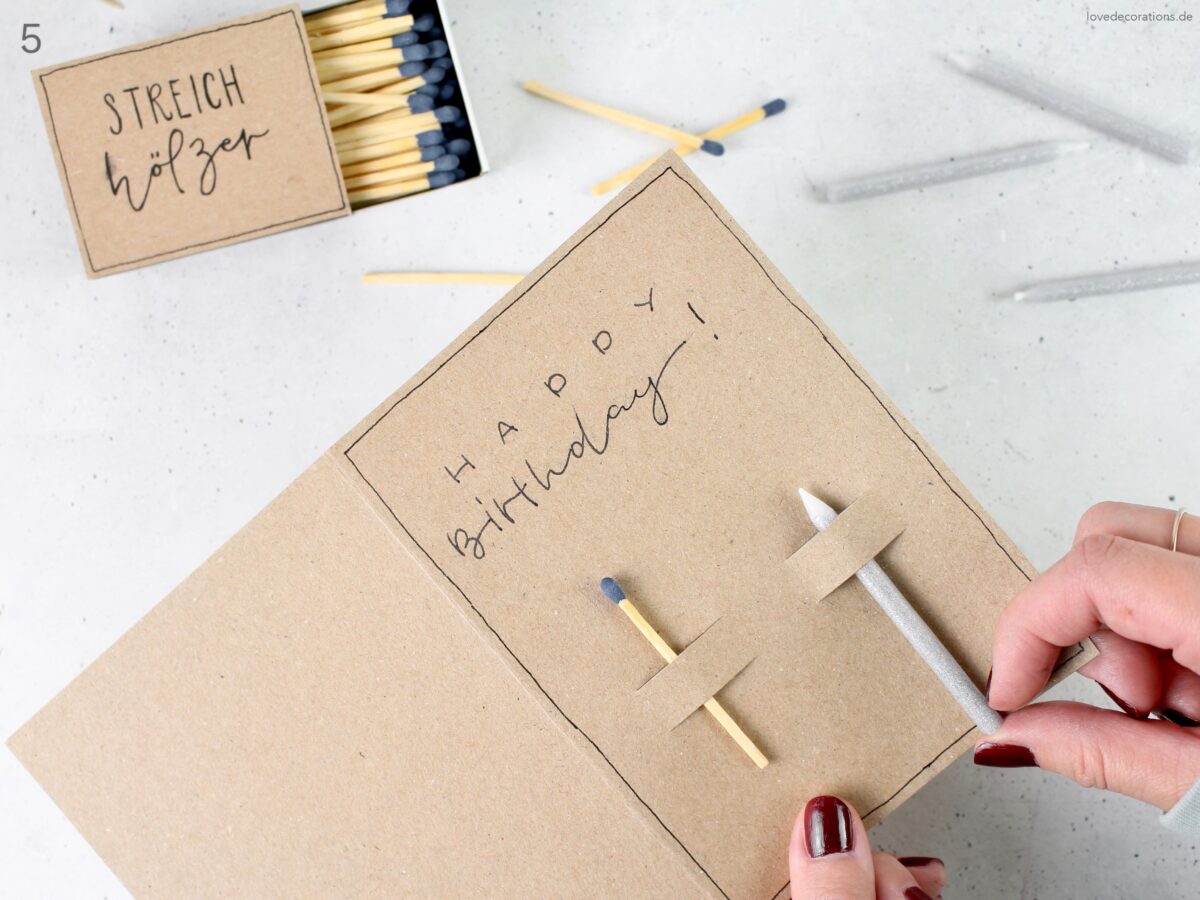 5
lovedecorations.de
STREICH
hölzer
HAPPY
Birthday!